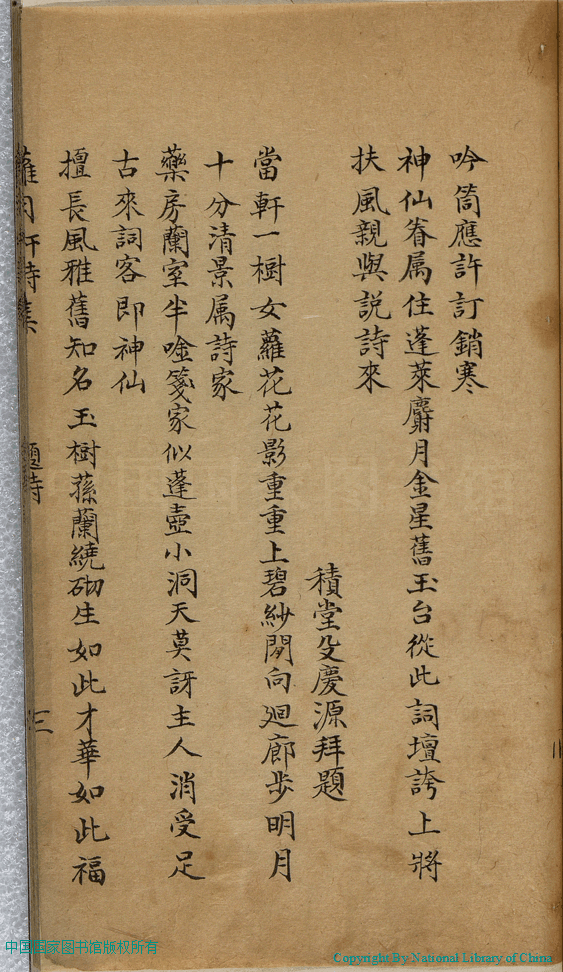 吟筒應許訂銷寒
神仙眷属住蓬萊麝月金星舊玉台從此詞壇誇上將
扶風親與説詩來
積堂殳慶源拜題
當軒一樹女蘿花花影重重上碧紗閒向廻廊步明月
十分清景属詩家
藥房蘭室半唫箋家似蓬壺小洞天莫訝主人消受足
古來詞客即神仙
擅長風雅舊知名玉樹蓀蘭繞砌生如此才華如此福
詩集
題詩
三
中国国家图书馆版权所有
Copyright By National Library of China